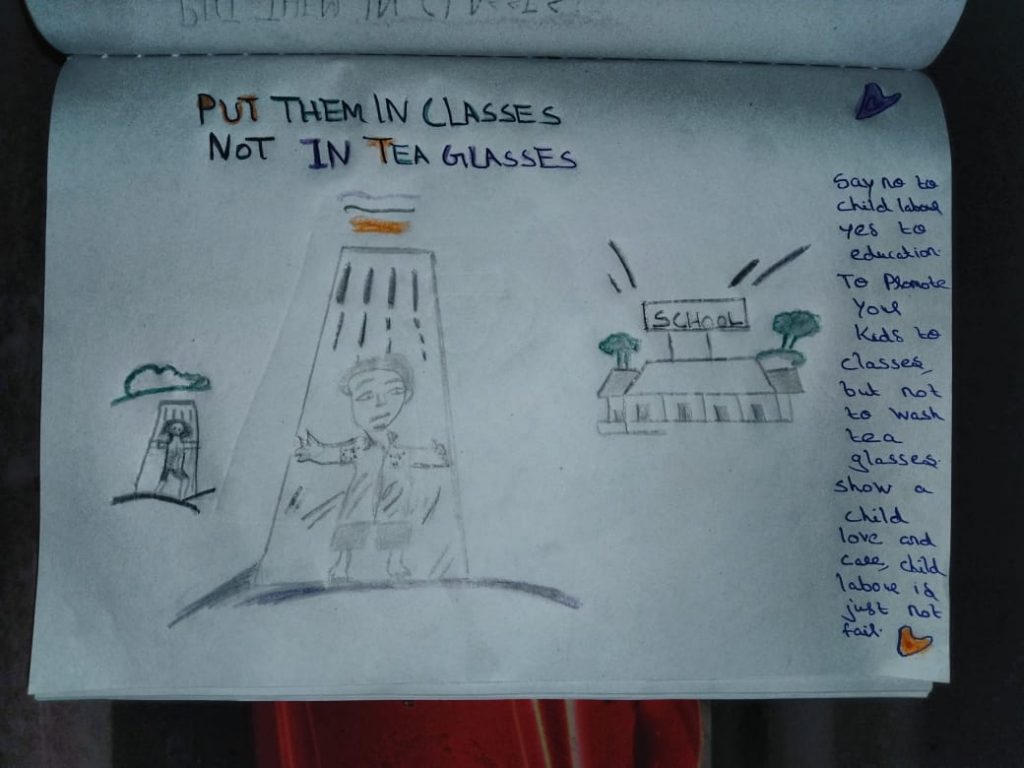 PUT THEM IN CLASSES
NOT IN TEA GLASSES
SCHOOL
Say no to
child labour
yes to
education.
To Promote
Your
Kids to
classes,
but not
to wash
tea
glasses.
show a
child
love and
care, child
labour is
just not
fair.